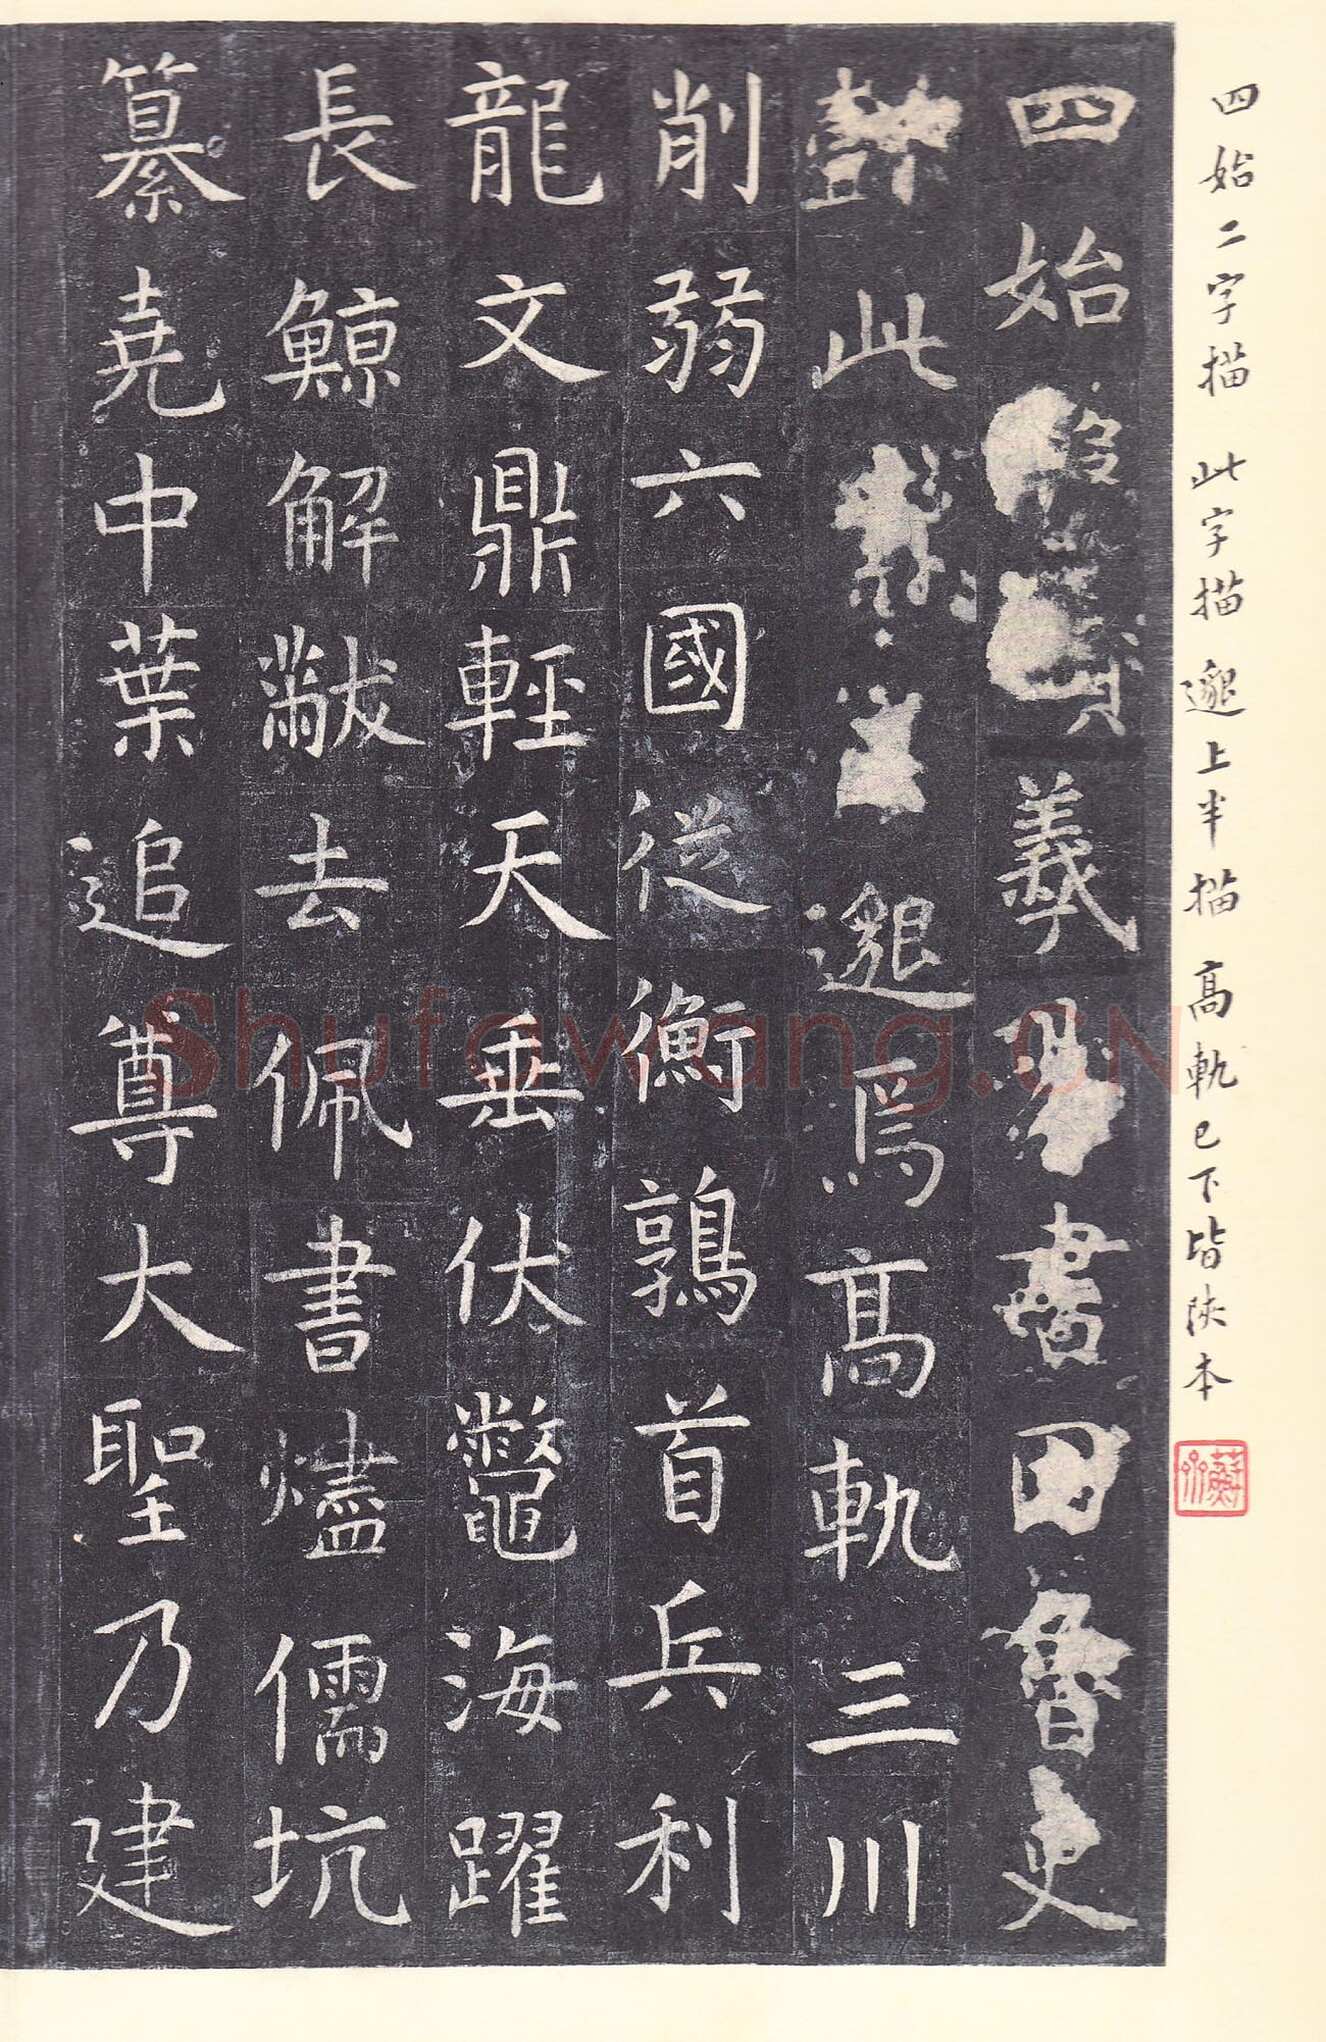 四始二字描 此字描 邈上半描 高軌已下皆陝本
四始羲書魯史
此邈焉高軌三川
削弱六國從衡鶉首兵利
龍文鼎輕天垂伏鼈海躍
長鯨解黻去佩書燼儒坑
纂堯中葉追尊大聖乃建
Shufawang.CN